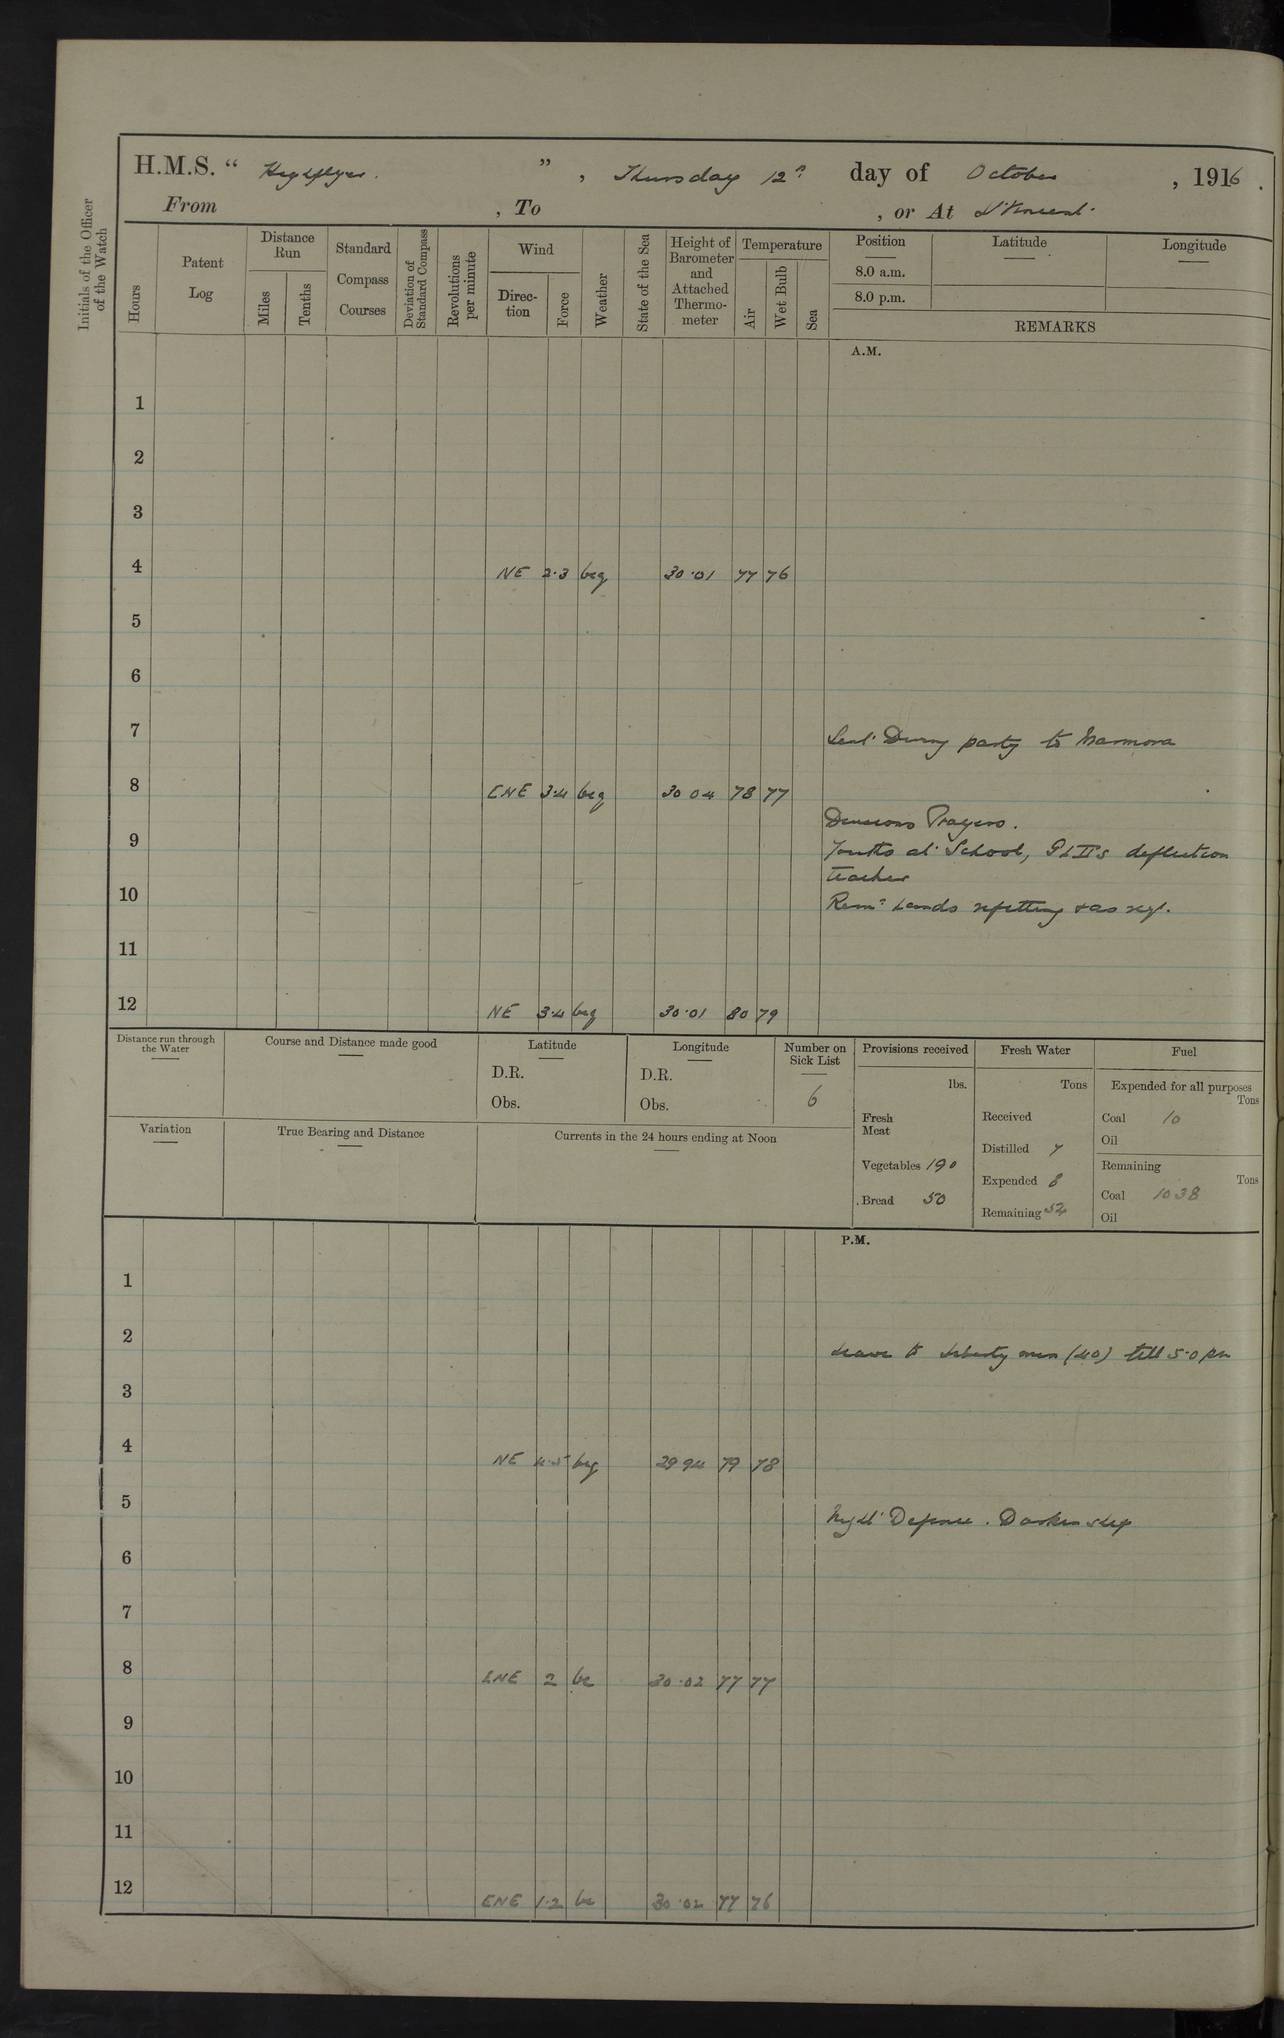 H.M.S. “ Highflyer. ” , Thursday 12th day of October , 1916 .
From , To , or At St Vincent.
Initials of the Officer of the Watch
Hours
Patent Log
Distance Run
Miles
Tenths
Standard Compass Courses
Deviation of Standard Compass
Revolutions per minute
Wind
Direc-tion
Force
Weather
State of the Sea
Height of Barometer and Attached Thermo-meter
Temperature
Air
Wet Bulb
Sea
Position
8.0 a.m.
8.0 p.m.
Latitude
Longitude
REMARKS
A.M.
1
2
3
4 NE 2.3 bcq 30.01 77 76
5
6
7
Sent Diving party to Marmora
8 ENE 3.4 bcq 30 04 78 77
Divisions Prayers.
9
Youths at School, Gds deflection
teacher
10
Remr hands refitting & as reqd.
11
12 NE 3.4 bcq 30.01 80 79
Distance run through the Water
Course and Distance made good
Latitude
D.R.
Obs.
Longitude
D.R.
Obs.
Number on Sick List
6
Variation
True Bearing and Distance
Currents in the 24 hours ending at Noon
Provisions received
lbs.
Fresh Meat
Vegetables 190
Bread 50
Fresh Water
Tons
Received
Distilled 7
Expended 8
Remaining 52
Fuel
Expended for all purposes
Tons
Coal 10
Oil
Remaining
Tons
Coal 1038
Oil
P.M.
1
2
Leave to liberty men (40) till 5.0 pm
3
4 NE 4.5 bcq 29 94 79 78
5
Night Defence. Darken ship
6
7
8 ENE 2 bc 30.02 77 77
9
10
11
12 ENE 1.2 bc 30.02 77 76